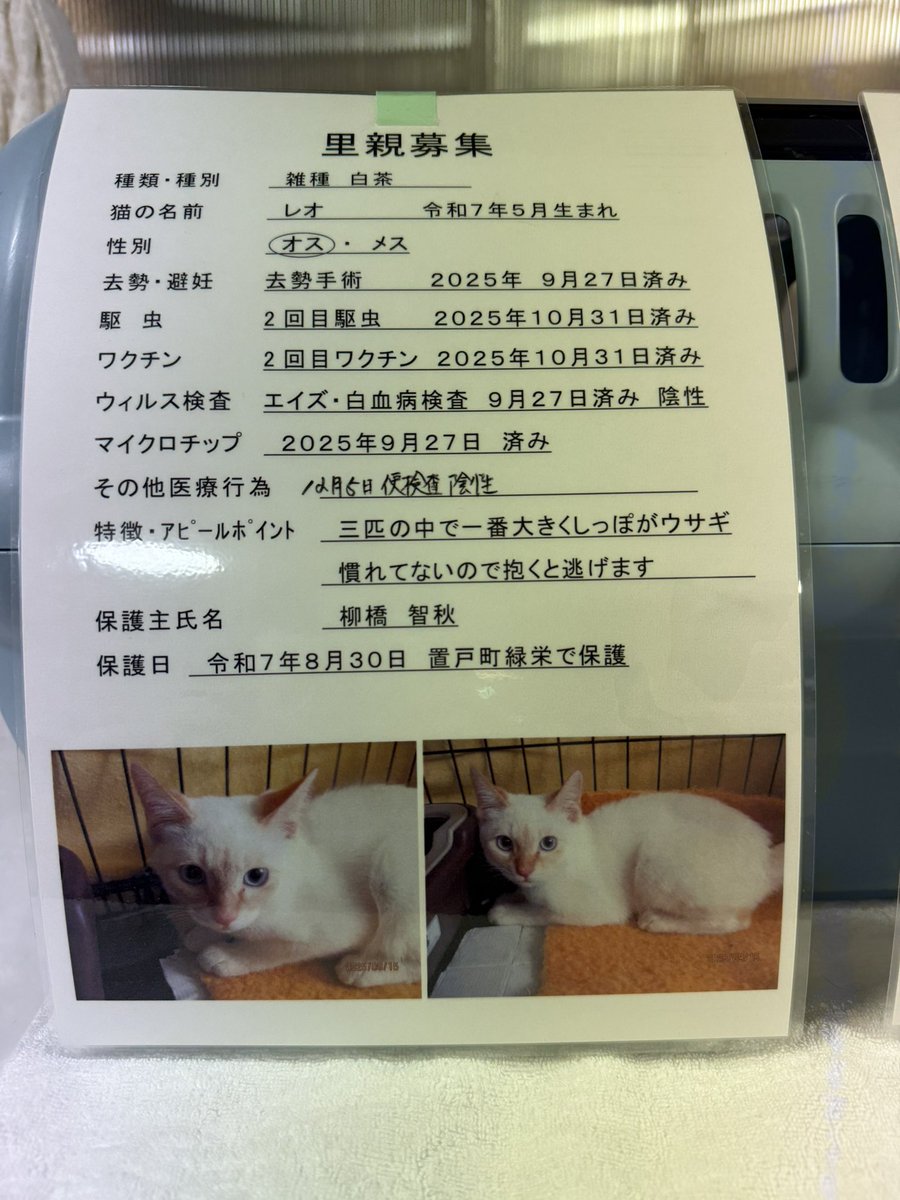 里親募集
種類・種別 雑種 白茶
猫の名前 レオ 令和7年5月生まれ
性別 オス・メス
去勢・避妊 去勢手術 2025年 9月27日済み
駆 虫 2回目駆虫 2025年10月31日済み
ワクチン 2回目ワクチン 2025年10月31日済み
ウィルス検査 エイズ・白血病検査 9月27日済み 陰性
マイクロチップ 2025年9月27日 済み
その他医療行為 12月5日 便検査 陰性
特徴・アピールポイント 三匹の中で一番大きくしっぽがウサギ
慣れてないので抱くと逃げます
保護主氏名 柳橋 智秋
保護日 令和7年8月30日 置戸町緑栄で保護